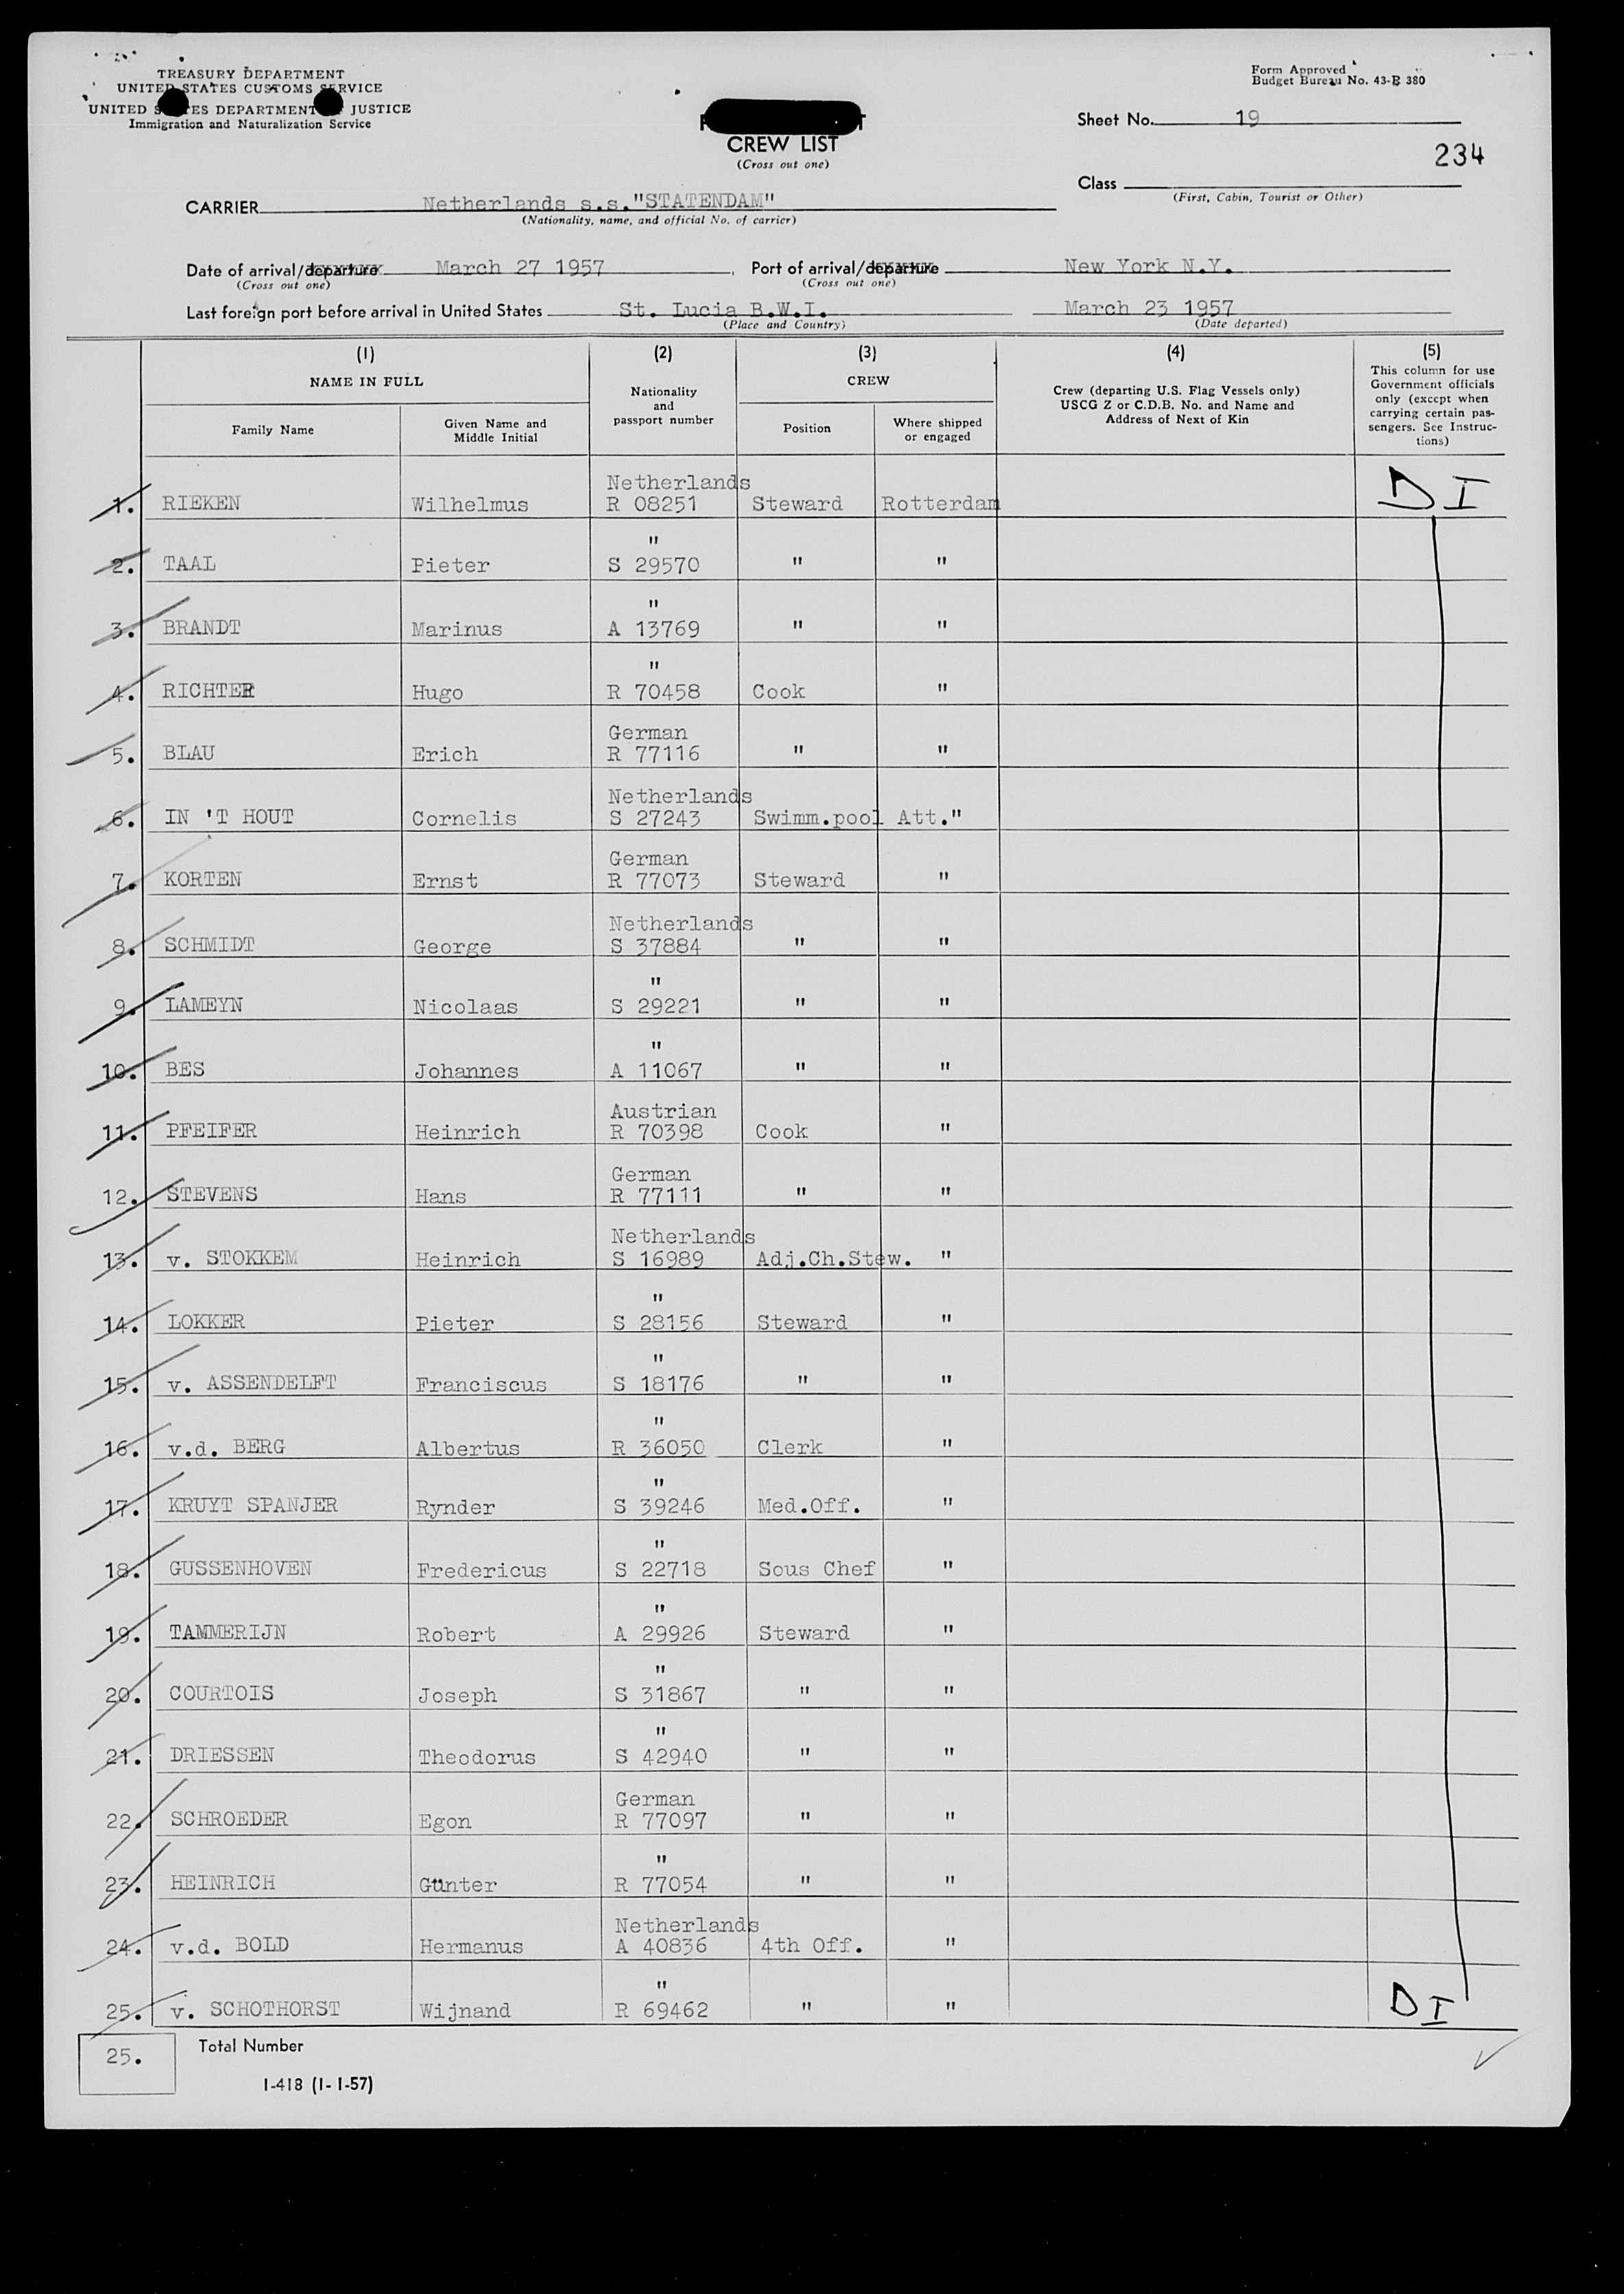 TREASURY DEPARTMENT
UNITED STATES CUSTOMS SERVICE
UNITED STATES DEPARTMENT OF JUSTICE
Immigration and Naturalization Service
Form Approved
Budget Bureau No. 43-R 380
Sheet No. 19
234
CREW LIST
(Cross out one)
Class
(First, Cabin, Tourist or Other)
CARRIER Netherlands s.s."STATENDAM"
(Nationality, name, and official No. of carrier)
Date of arrival/departure March 27 1957 Port of arrival/departure New York N.Y.
(Cross out one) (Cross out one)
Last foreign port before arrival in United States St. Lucia B.W.I. March 23 1957
(Place and Country) (Date departed)
(1) (2) (3) (4) (5)
NAME IN FULL
Family Name
Given Name and
Middle Initial
Nationality
and
passport number
CREW
Position
Where shipped
or engaged
Crew (departing U.S. Flag Vessels only)
USCG Z or C.D.B. No. and Name and
Address of Next of Kin
This column for use
Government officials
only (except when
carrying certain pas-
sengers. See Instruc-
tions)
Netherlands
1. RIEKEN Wilhelmus R 08251 Steward Rotterdam D I
"
2. TAAL Pieter S 29570 " "
"
3. BRANDT Marinus A 13769 " "
"
4. RICHTER Hugo R 70458 Cook "
German
5. BLAU Erich R 77116 " "
Netherlands
6. IN 'T HOUT Cornelis S 27243 Swimm.pool Att."
German
7. KORTEN Ernst R 77073 Steward "
Netherlands
8. SCHMIDT George S 37884 " "
"
9. LAMEYN Nicolaas S 29221 " "
"
10. BES Johannes A 11067 " "
Austrian
11. PFEIFER Heinrich R 70398 Cook "
German
12. STEVENS Hans R 77111 " "
Netherlands
13. v. STOKKEM Heinrich S 16989 Adj.Ch.Stew. "
"
14. LOKKER Pieter S 28156 Steward "
"
15. v. ASSENDELFT Franciscus S 18176 " "
"
16. v.d. BERG Albertus R 36050 Clerk "
"
17. KRUYT SPANJER Rynder S 39246 Med.Off. "
"
18. GUSSENHOVEN Fredericus S 22718 Sous Chef "
"
19. TAMMERIJN Robert A 29926 Steward "
"
20. COURTOIS Joseph S 31867 " "
"
21. DRIESSEN Theodorus S 42940 " "
German
22. SCHROEDER Egon R 77097 " "
"
23. HEINRICH Günter R 77054 " "
Netherlands
24. v.d. BOLD Hermanus A 40836 4th Off. "
"
25. v. SCHOTHORST Wijnand R 69462 " " D I
25. Total Number
I-418 (1-1-57)